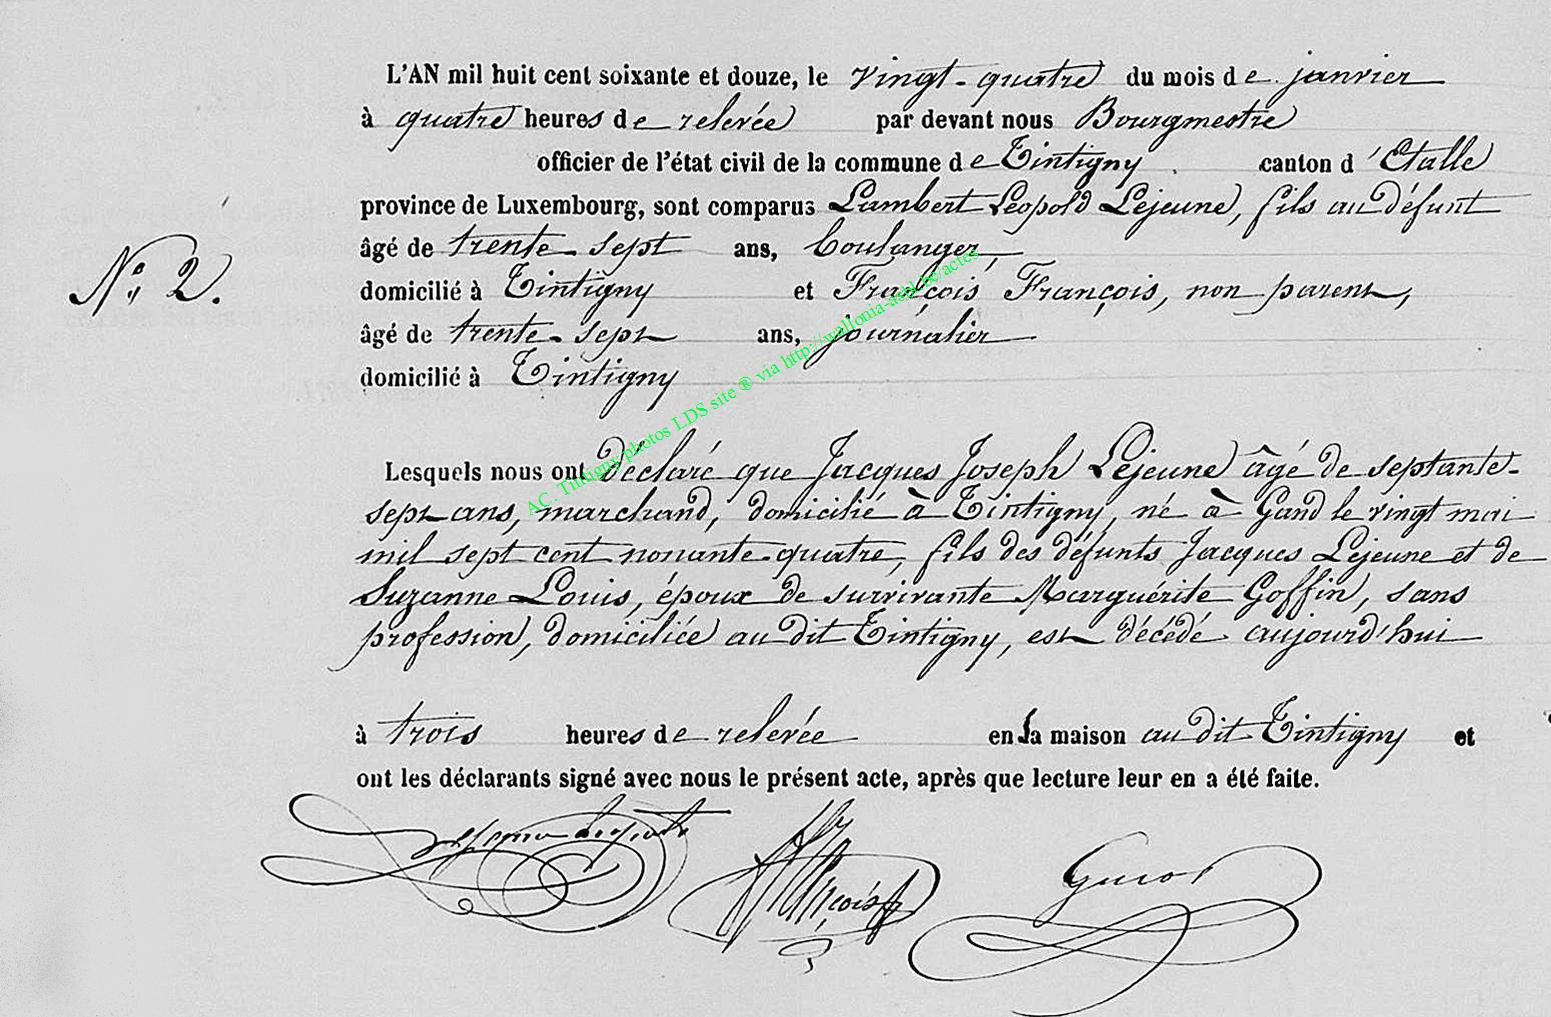 L'AN mil huit cent soixante et douze, le vingt-quatre du mois de janvier
à quatre heures de relevée par devant nous Bourgmestre
officier de l'état civil de la commune de Tintigny canton d'Etalle
province de Luxembourg, sont comparus Lambert Léopold Lejeune, fils au défunt
âgé de trente-sept ans, boulanger,
N° 2.
domicilié à Tintigny et François François, non parent,
âgé de trente-sept ans, journalier
domicilié à Tintigny
Lesquels nous ont déclaré que Jacques Joseph Lejeune âgé de septante-
sept ans, marchand, domicilié à Tintigny, né à Gand le vingt mai
mil sept cent nonante-quatre, fils des défunts Jacques Lejeune et de
Suzanne Louis, époux de survivante Marguérite Goffin, sans
profession, domiciliée au dit Tintigny, est décédé aujourd'hui
à trois heures de relevée en la maison au dit Tintigny et
ont les déclarants signé avec nous le présent acte, après que lecture leur en a été faite.
A.C. Tintigny photos LDS site ® via http://wallonia-asbl.be/actes